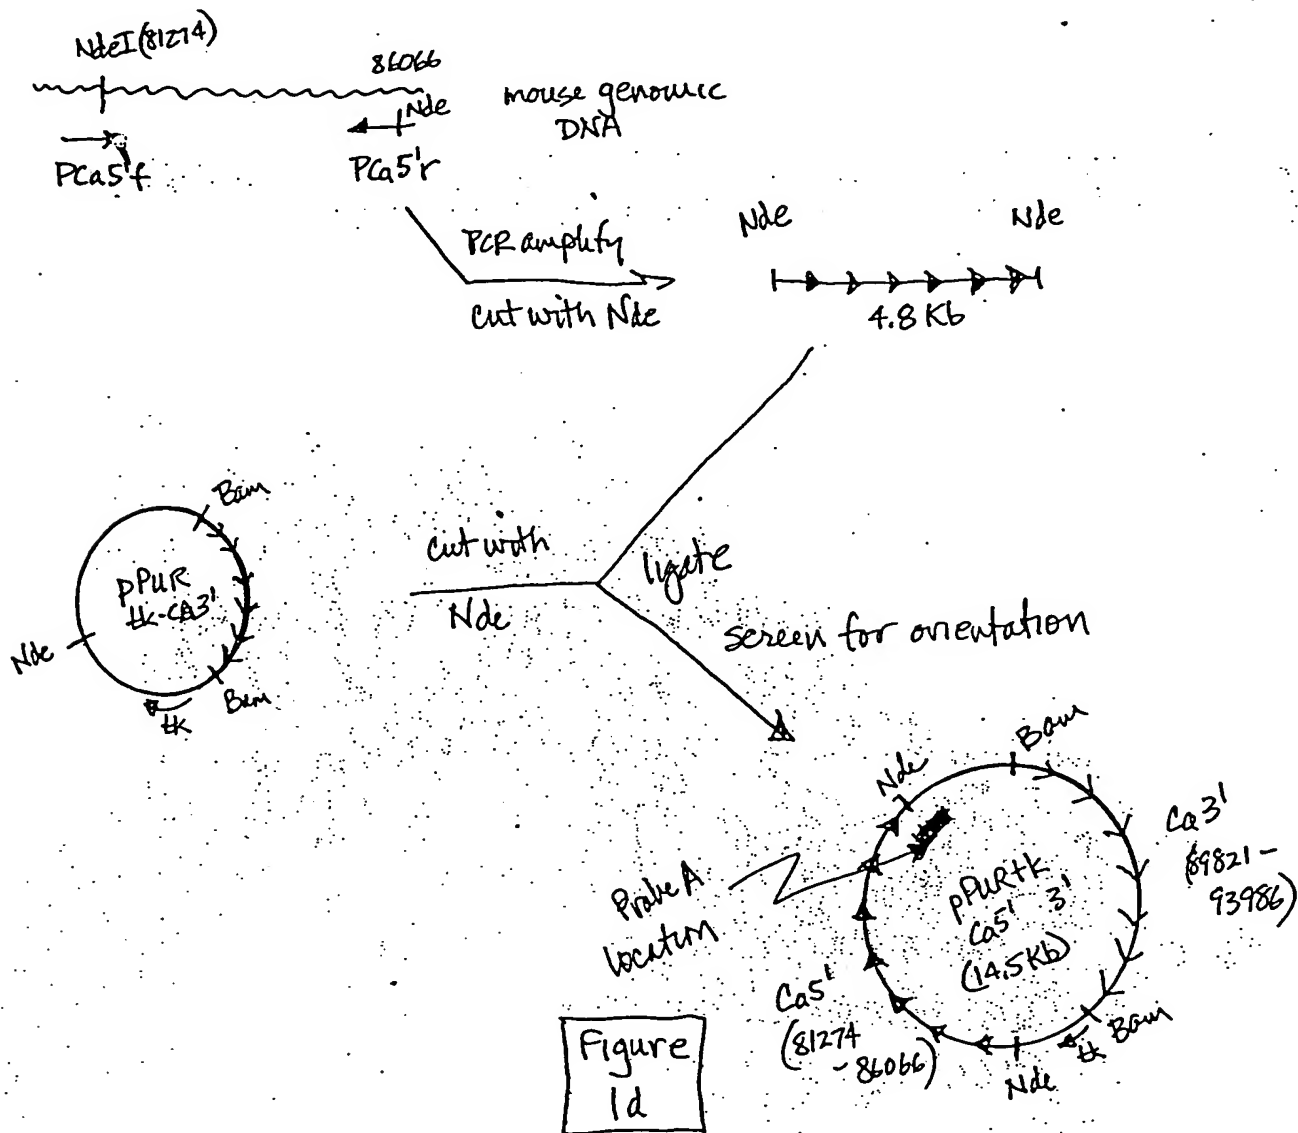 NdeI (81274)
86066
Nde
mouse genomic
DNA
PCa5'f
PCa5'r
PCR amplify
cut with Nde
Nde
Nde
4.8 Kb
Bam
pPUR
tk-Ca3'
Nde
Bam
tk
cut with
Nde
ligate
screen for orientation
Nde
Bam
Ca3'
(89821 -
93986)
Probe A
location
pPURtk
Ca5' 3'
(14.5Kb)
Ca5'
(81274
- 86066)
tk
Bam
Nde
Figure
1d